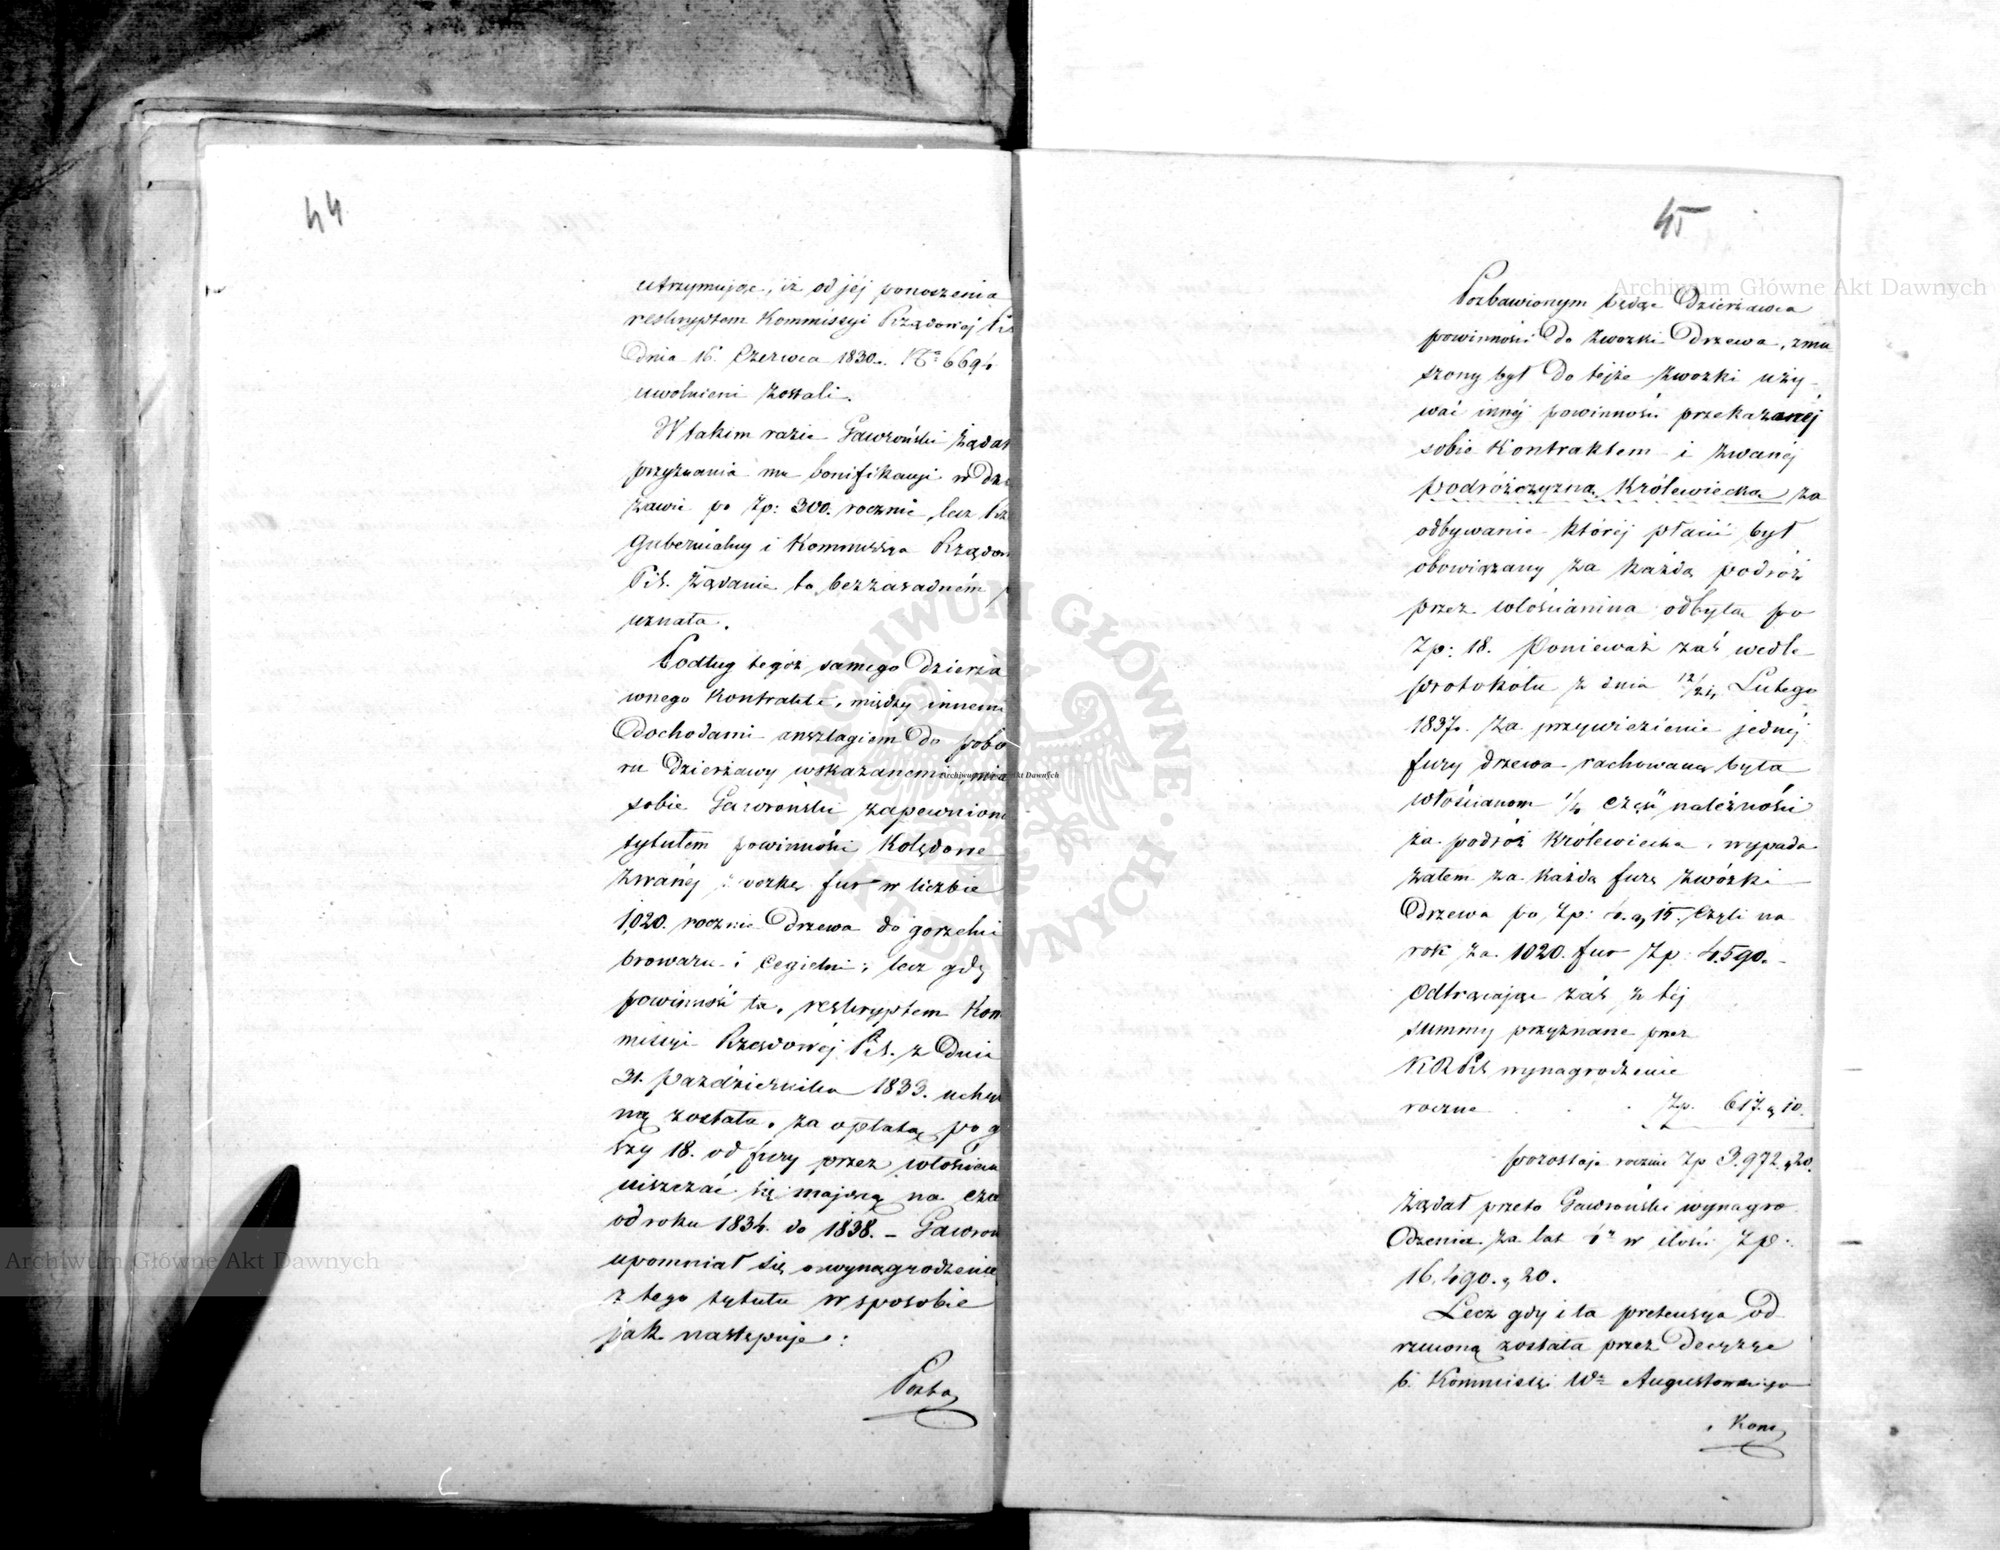 44
utrzymując, iż od jéj ponoszenia
reskryptem Kommissyi Rządowéj
Dnia 16 Czerwca 1830. No 6694
uwolnieni zostali.
W takim razie Gawroński żądał
przyznania mu bonifikacyi w Dzier
żawie po Zp: 300. rocznie, lecz Rząd
Gubernialny i Kommissya Rządow
P i S. żądanie to bezzasadném
uznała.
Podług tegóż samego Dzierża
wnego Kontraktu, między innemi
Dochodami anszlagiem do pobo
ru Dzierżawy wskazanemi, mia
sobie Gawroński zapewnion
tytułem powinności Kolędowe
zwanéj zwózkę fur w liczbie
1,020. rocznie Drzewa do gorzelni
browaru i Cegielni; lecz gdy
powinność ta, reskryptem Kom
missyi Rządowéj P i S. z Dnia
31. Października 1833. uchyl
ną została, za opłatą po g
szy 18. od fury przez włościan
uiszczać się mającą na cza
od roku 1834. do 1838. – Gawron
upomniał się o wynagrodzenie
z tego tytułu w sposobie
jak następuje:
Pozba
45
Pozbawionym będąc Dzierżawca
powinności Do zwózki Drzewa, zmu
szony był Do tejże zwózki uży-
wać innéj powinności przekazanéj
sobie Kontraktem i zwanéj
podróżczyzną Królewiecką za
odbywanie któréj płacić był
obowiązany za każdą podróż
przez włościanina odbytą po
Zp: 18. Ponieważ zaś wedle
protokółu z dnia 12/24 Lutego
1837. za przywiezienie jednéj
fury drzewa rachowaną była
włościanom 1/4 część należności
za podróż Królewiecką, wypada
zatem za każdą furę zwózki
Drzewa po Zp: 4. g 15. Czyli na
rok za 1020. fur Zp: 4.590. –
Odtrącając zaś z téj
summy przyznane przez
K R P i S wynagrodzenie
roczne . . Zp. 617. g 10.
pozostaje rocznie Zp 3.972. g 20.
Żądał przeto Gawroński wynagro
Dzenia za lat w ilości Zp:
16.490. g 20.
Lecz gdy i ta pretensya od
rzuconą została przez Decyzye
b. Kommissyi Wa Augustowskiego
Kom
Archiwum Główne Akt Dawnych
Archiwum Główne Akt Dawnych
Archiwum Główne Akt Dawnych
ARCHIWUM GŁÓWNE AKT DAWNYCH